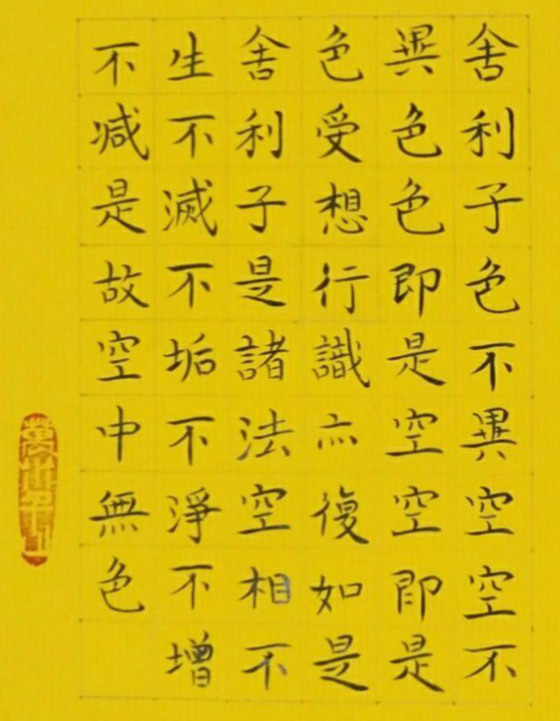 舍利子色不異空空不
異色色即是空空即是
色受想行識亦復如是
舍利子是諸法空相不
生不滅不垢不淨不增
不減是故空中無色